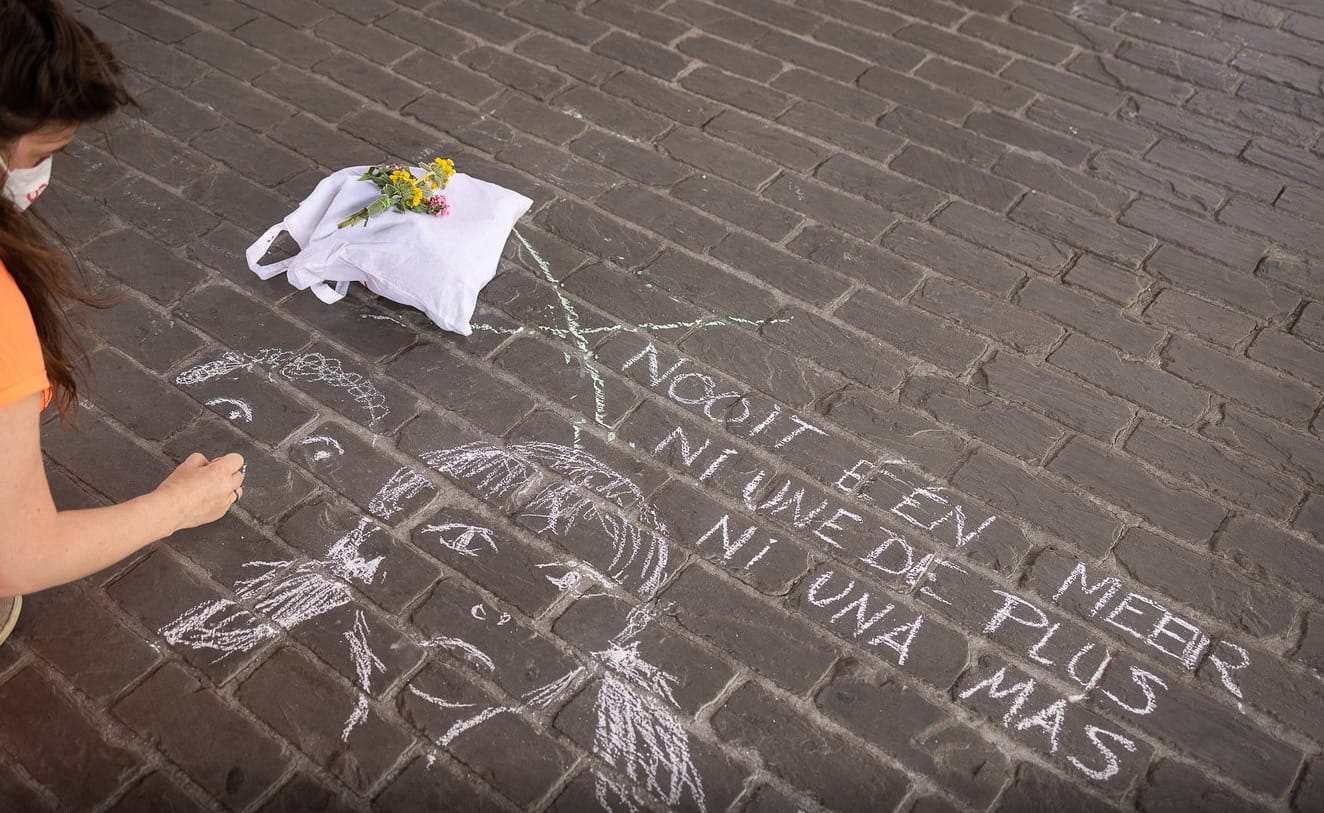 NOOIT ÉÉN MEER
NI UNE DE PLUS
NI UNA MÁS